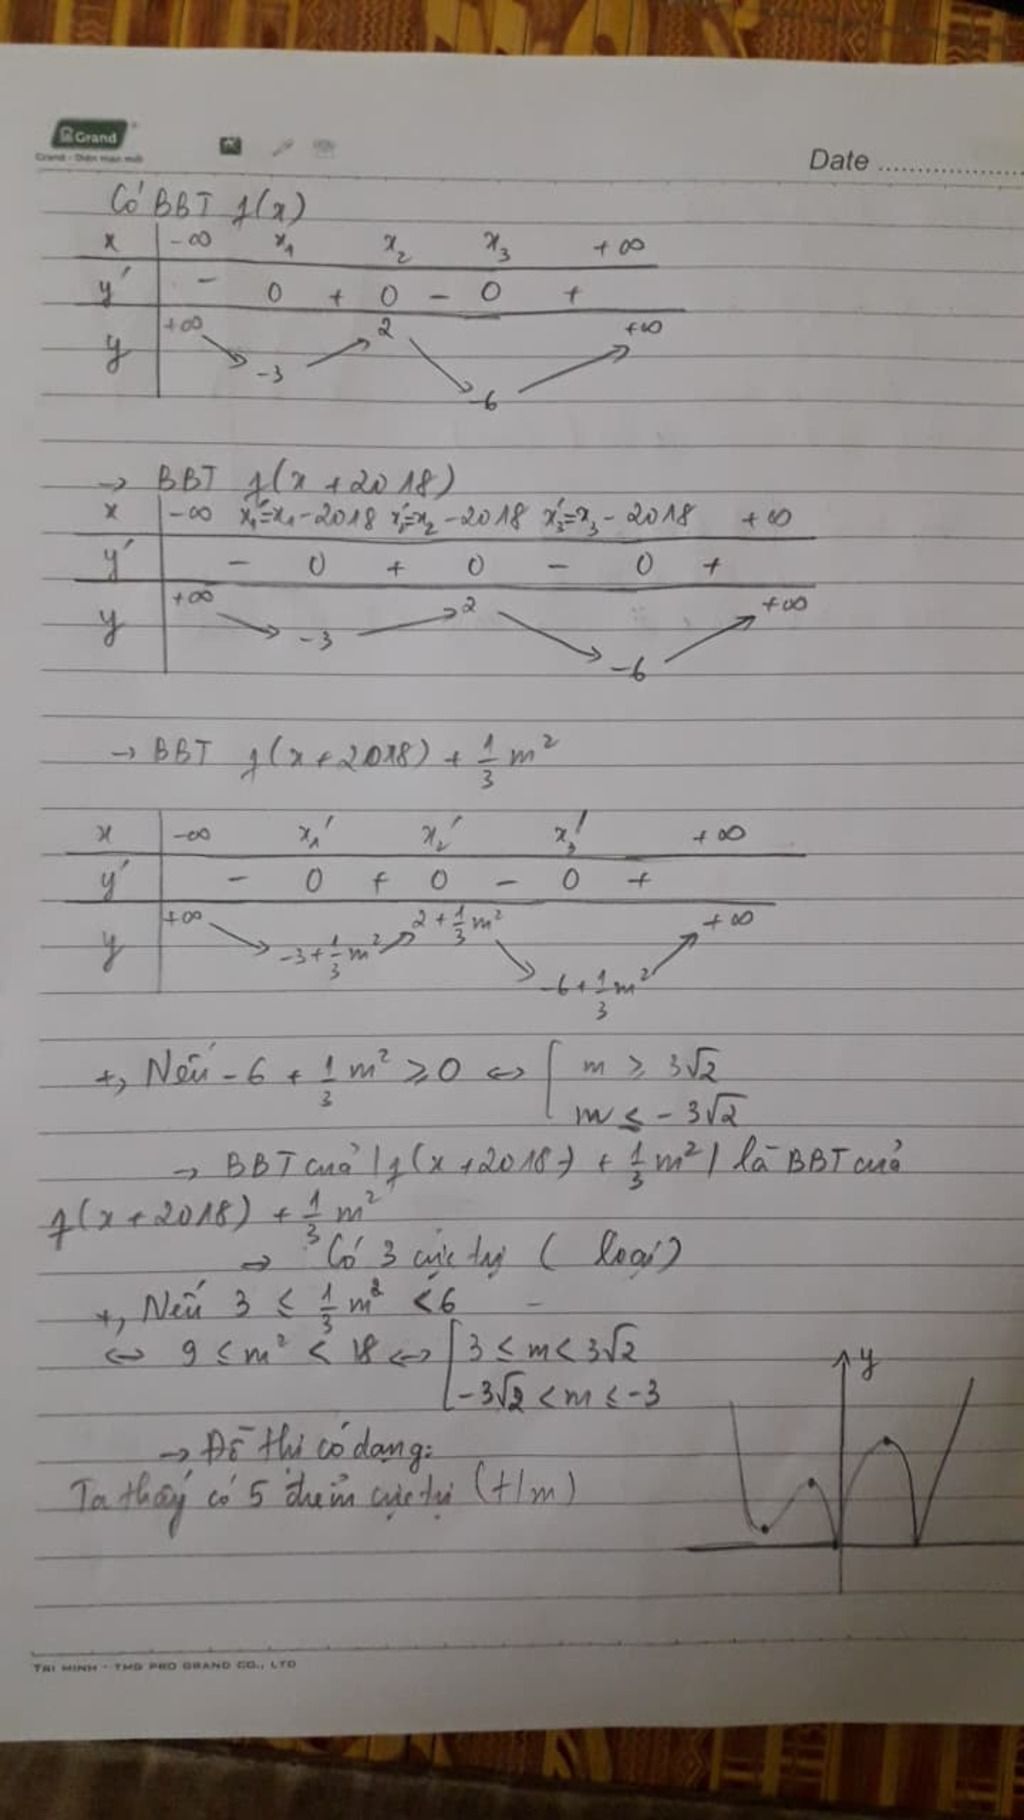 Grand
Grand - Diện mạo mới
Date ....................
Có BBT f(x)
x -∞ x₁ x₂ x₃ +∞
y' - 0 + 0 - 0 +
y +∞ -3 2 -6 +∞
→ BBT f(x+2018)
x -∞ x₁'=x₁-2018 x₂'=x₂-2018 x₃'=x₃-2018 +∞
y' - 0 + 0 - 0 +
y +∞ -3 2 -6 +∞
→ BBT f(x+2018) + 1/3 m²
x -∞ x₁' x₂' x₃' +∞
y' - 0 + 0 - 0 +
y +∞ -3+1/3 m² 2+1/3 m² -6+1/3 m² +∞
+, Nếu -6 + 1/3 m² ≥ 0 ⇔ [ m ≥ 3√2
m ≤ -3√2
→ BBT của |f(x+2018) + 1/3 m²| là BBT của
f(x+2018) + 1/3 m²
⇒ Có 3 cực trị ( loại)
+, Nếu 3 ≤ 1/3 m² < 6
⇔ 9 ≤ m² < 18 ⇔ [ 3 ≤ m < 3√2
-3√2 < m ≤ -3
y
→ Đồ thị có dạng:
Ta thấy có 5 điểm cực trị (t/m)
TRI MINH - TMG PRO GRAND CO., LTD